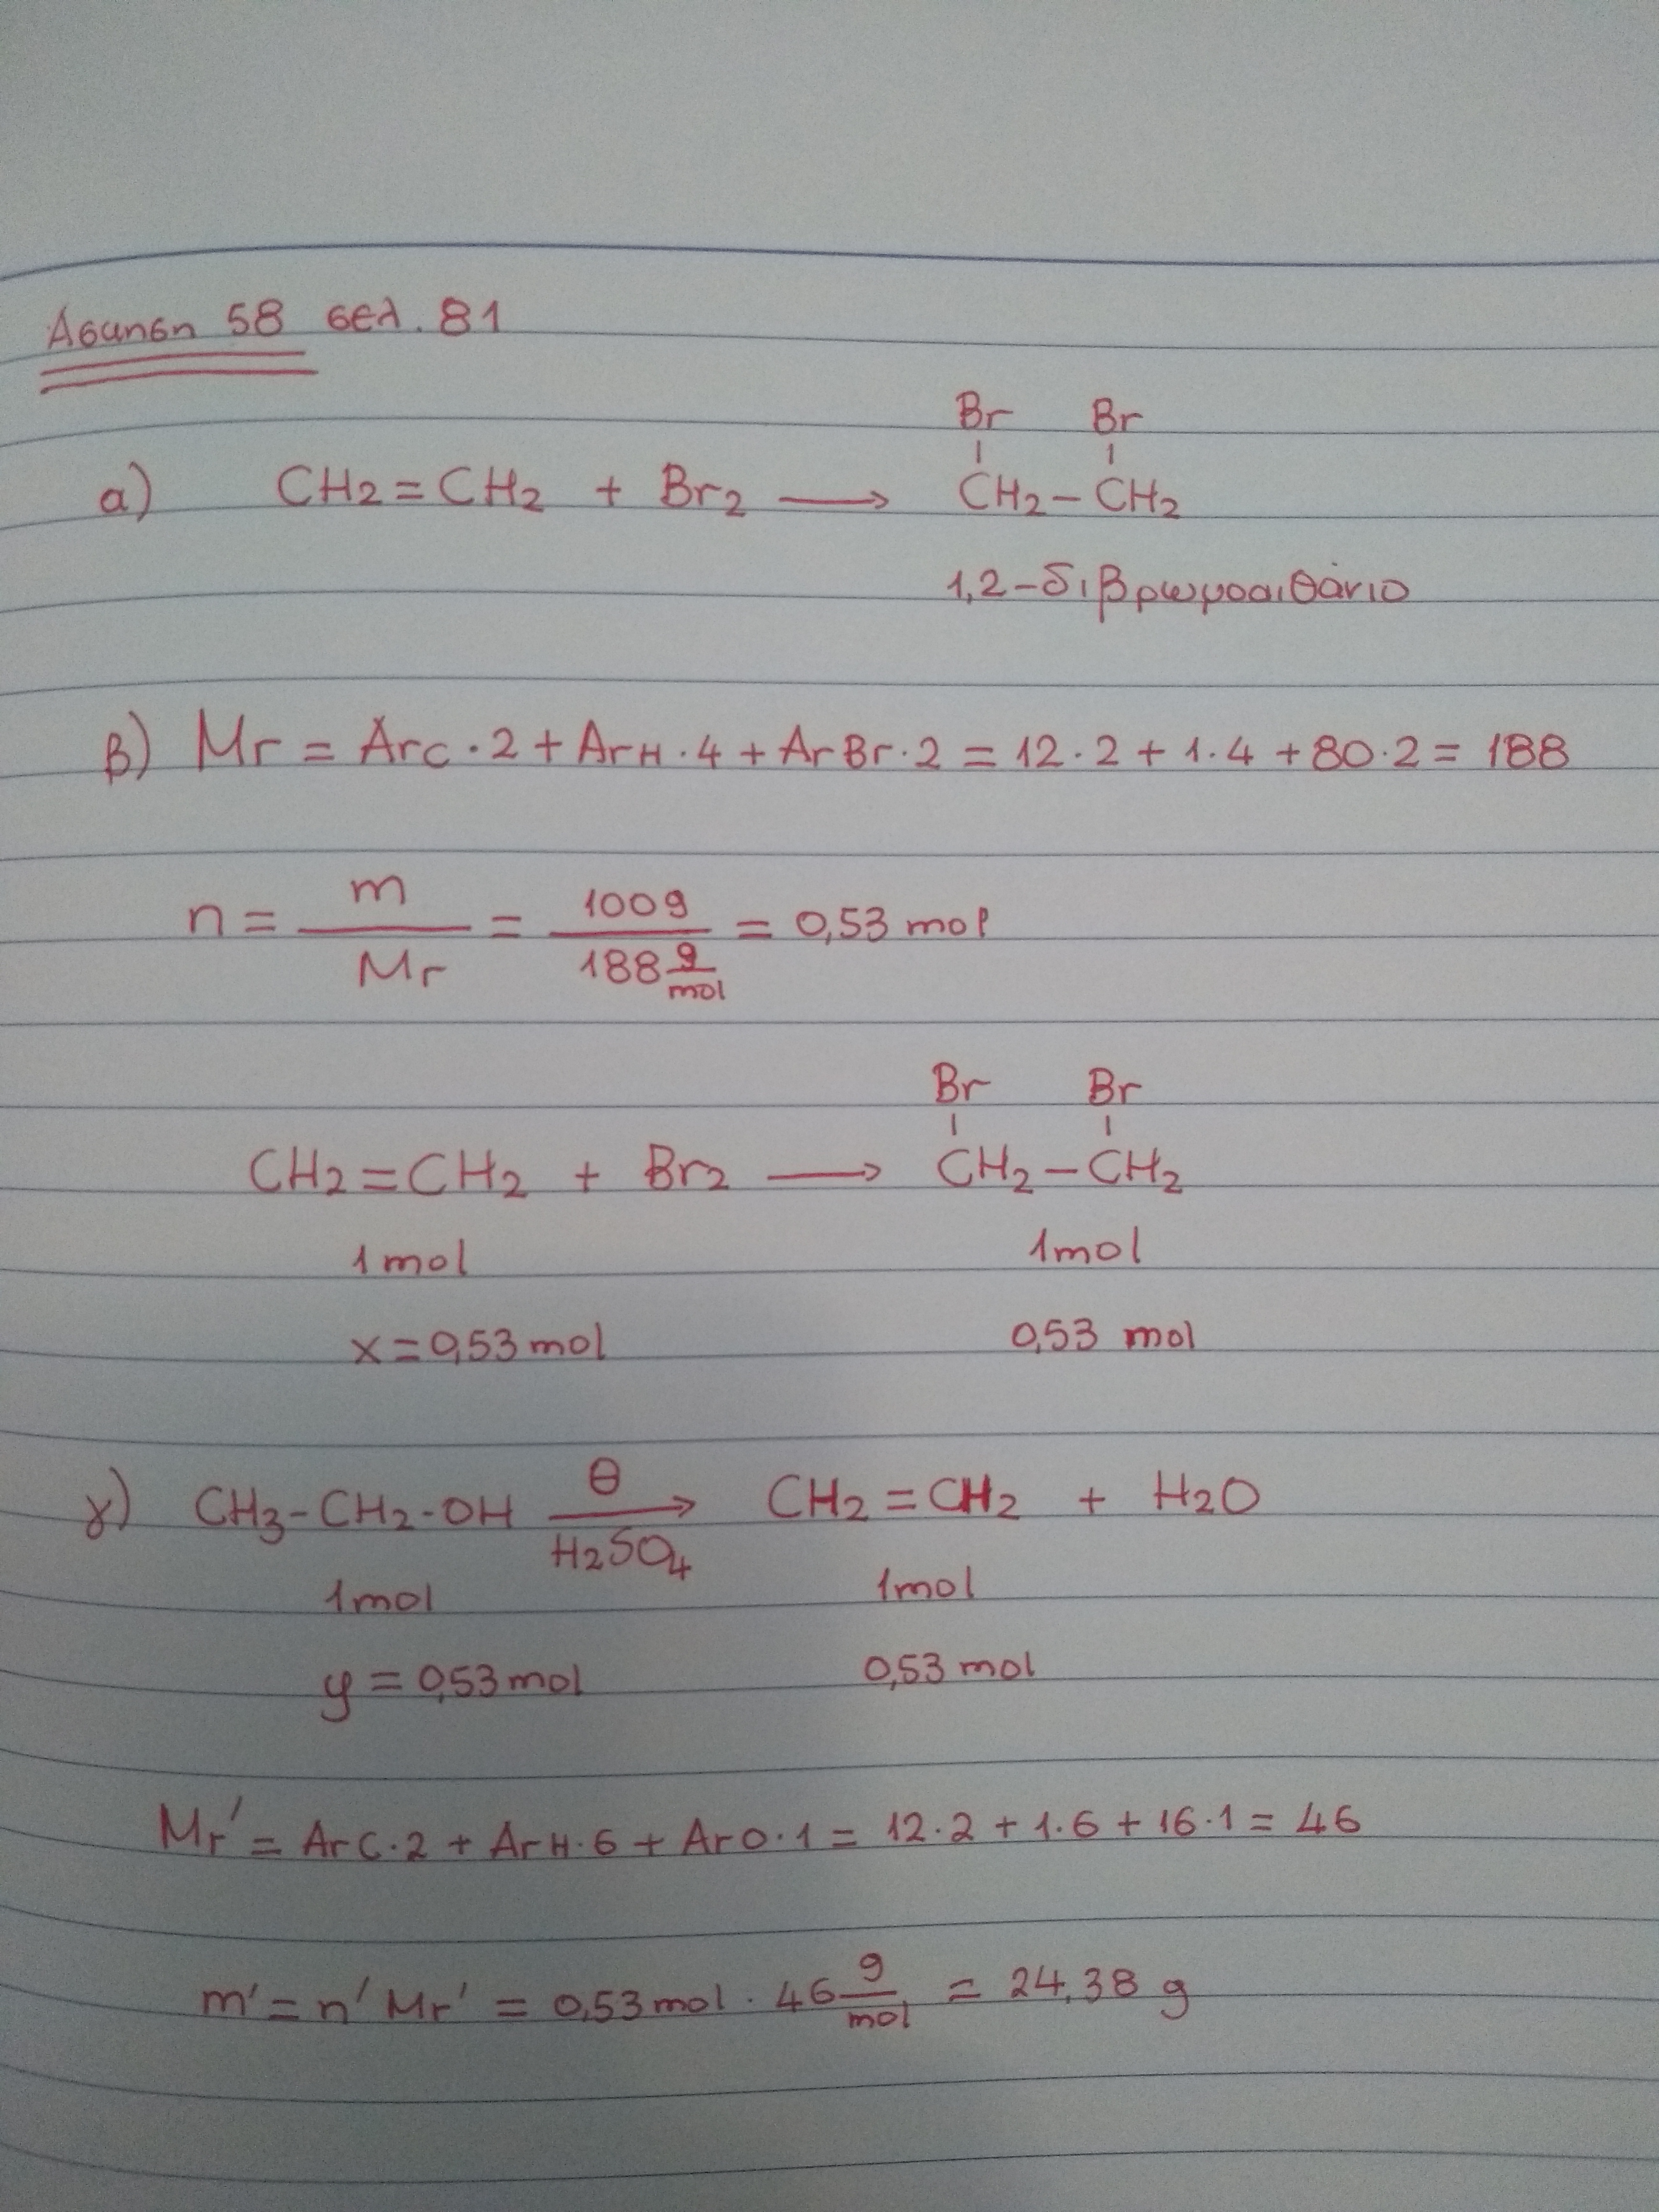 Άσκηση 58 σελ. 81
Br Br
α) CH2=CH2 + Br2 ⟶ CH2–CH2
1,2-διβρωμοαιθάνιο
β) Mr = ArC·2 + ArH·4 + ArBr·2 = 12·2 + 1·4 + 80·2 = 188
n = m/Mr = 100g/188 g/mol = 0,53 mol
Br Br
CH2=CH2 + Br2 ⟶ CH2–CH2
1mol 1mol
x=0,53 mol 0,53 mol
γ) CH3-CH2-OH θ ⟶ H2SO4 CH2=CH2 + H2O
1mol 1mol
y = 0,53mol 0,53 mol
Mr' = ArC·2 + ArH·6 + ArO·1 = 12·2 + 1·6 + 16·1 = 46
m' = n' Mr' = 0,53mol · 46 g/mol = 24,38 g